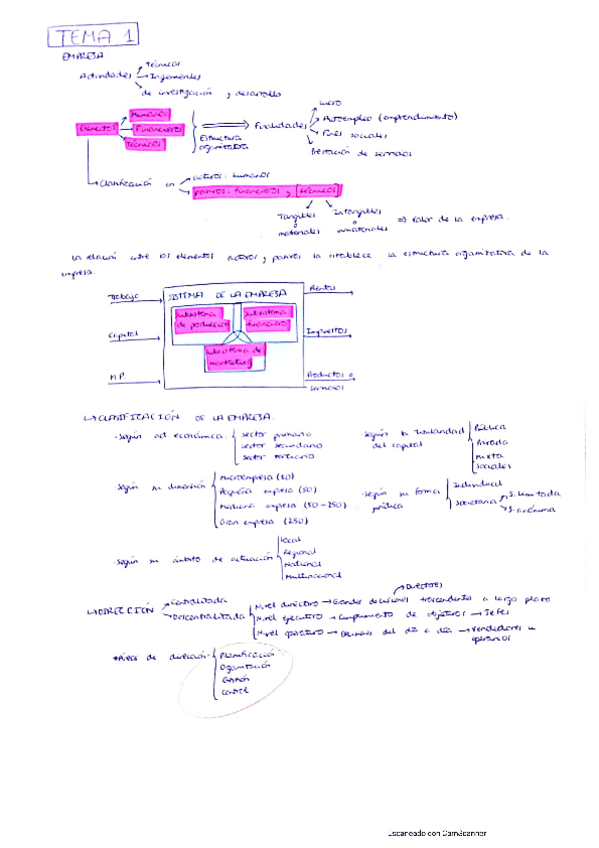 TEMA 1
EMPRESA
Actividades → Técnicos
→ Ingenientes
→ de investigación y desarrollo
Elementos → Humanos
→ Financieros
→ Técnicos
Estructura organizativa
⟹ Finalidades → Lucro
→ Autoempleo (emprendimiento)
→ Fines sociales
→ Prestación de servicios
→ Clasificación en → activos: humanos
→ pasivos: financieros y técnicos
Tangibles o materiales
Intangibles o inmateriales
⇒ Valor de la empresa.
La relación entre los elementos activos y pasivos la establece la estructura organizativa de la
empresa.
Trabajo
Capital
M.P
SISTEMA DE LA EMPRESA
Subsistema de producción
Subsistema financiero
Subsistema de marketing
Rentas
Impuestos
Productos o servicios
↳ CLASIFICACIÓN DE LA EMPRESA.
- Según act económica: sector primario
sector secundario
sector terciario
- Según la titularidad del capital
Pública
Privada
Mixta
Sociales
- Según su dimensión
Microempresa (10)
Pequeña empresa (50)
Mediana empresa (50-250)
Gran empresa (250)
- Según su forma jurídica
Individual
Societaria → S. limitada
→ S. anónima
- Según su ámbito de actuación
Local
Regional
Nacional
Multinacional
↳ DIRECCIÓN → Centralizada
→ Descentralizada
Nivel directivo → Grandes decisiones trascendentes a largo plazo → Directores
Nivel ejecutivo → Cumplimiento de objetivos → Jefes
Nivel operativo → del día a día → Vendedores u operarios
* Áreas de dirección
Planificación
Organización
Gestión
Control
Escaneado con CamScanner